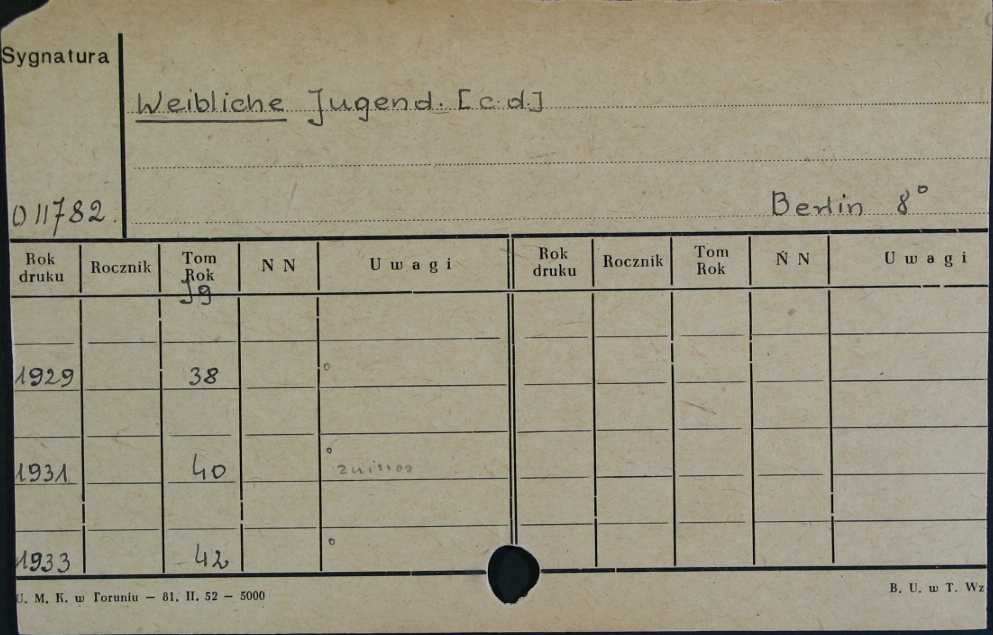 Sygnatura
Weibliche Jugend. [c.d.]
011782.
Berlin 8°
Rok druku Rocznik Tom Rok N N Uwagi Rok druku Rocznik Tom Rok N N Uwagi
Jg
1929 38 °
1931 40 °
1933 42 °
U. M. K. w Toruniu – 81. II. 52 – 5000
B. U. w T. Wz